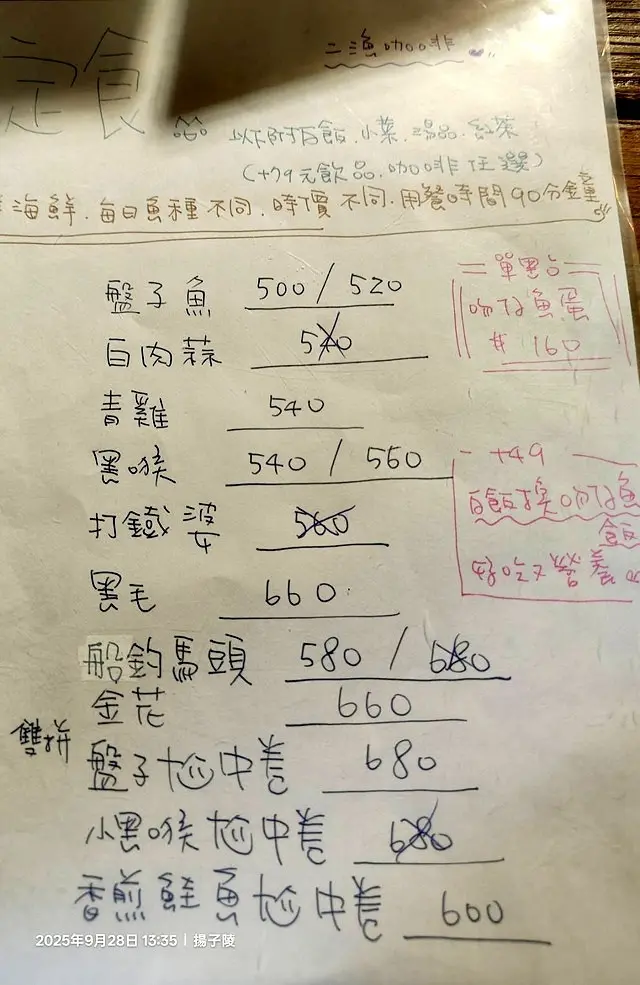 二漁咖啡
定食
以下附白飯.小菜.湯品.紅茶
(+79元飲品.咖啡任選)
海鮮.每日魚種不同.時價不同.用餐時間90分鐘
盤子魚 500/520
白肉蒜 540
青雞 540
黑喉 540/560
打鐵婆 560
黑毛 660
船釣馬頭 580/680
金花 660
雙拼
盤子尬中卷 680
小黑喉尬中卷 680
香煎鮭魚尬中卷 600
單點
吻仔魚蛋
# 160
+49
白飯換吻仔魚
飯
好吃又營養
2025年9月28日 13:35 | 揚子陵